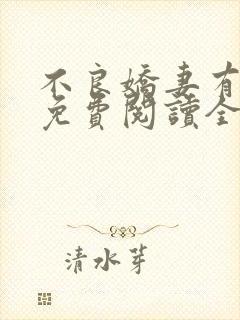 不良嬌妻有
免費閱讀全
清水芽